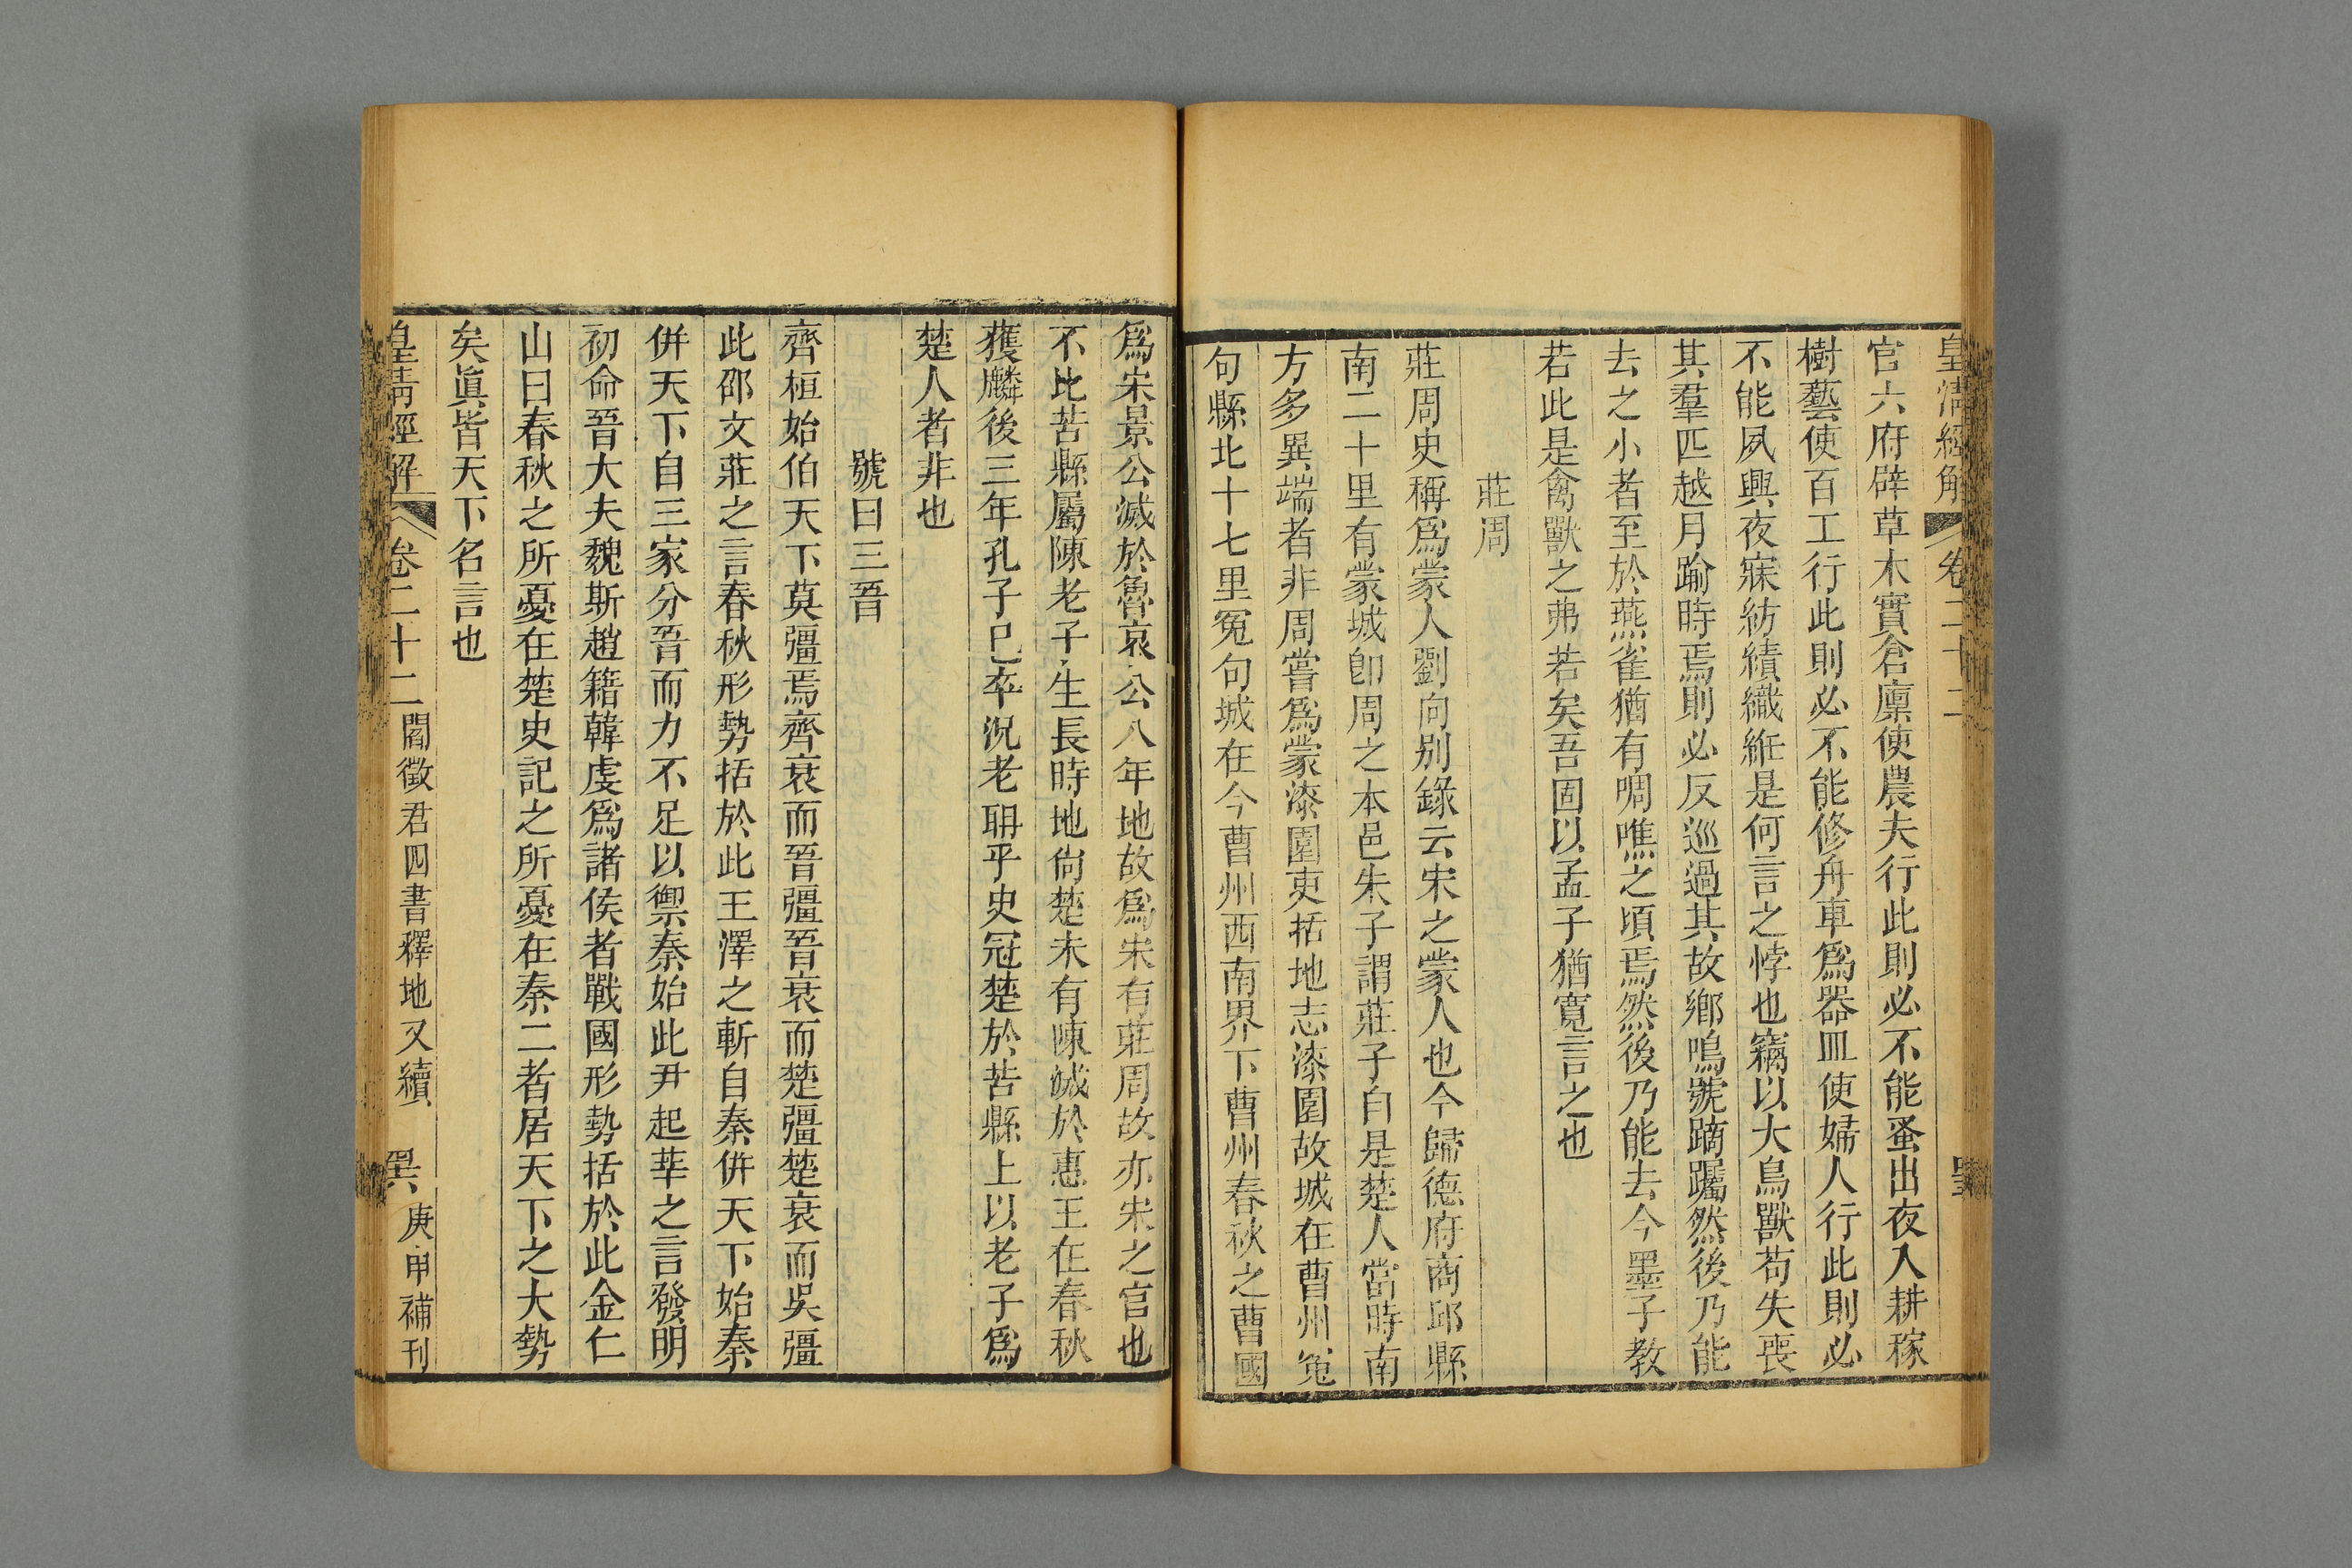 皇清經解 卷二十二
官六府辟草木實倉廩使農夫行此則必不能蚤出夜入耕稼
樹藝使百工行此則必不能修舟車爲器皿使婦人行此則必
不能夙興夜寐紡績織絍是何言之悖也竊以大鳥獸苟失喪
其羣匹越月踰時焉則必反巡過其故鄉鳴號蹢躅然後乃能
去之小者至於燕雀猶有啁噍之頃焉然後乃能去今墨子教
若此是禽獸之弗若矣吾固以孟子猶寬言之也
莊周
莊周史稱爲蒙人劉向别錄云宋之蒙人也今歸德府商邱縣
南二十里有蒙城卽周之本邑朱子謂莊子自是楚人當時南
方多異端者非周嘗爲蒙漆園吏括地志漆園故城在曹州冤
句縣北十七里冤句城在今曹州西南界下曹州春秋之曹國
爲宋景公滅於魯哀公八年地故爲宋有莊周故亦宋之官也
不比苦縣屬陳老子生長時地尚楚未有陳滅於惠王在春秋
獲麟後三年孔子已卒況老耼乎史冠楚於苦縣上以老子爲
楚人者非也
號曰三晉
齊桓始伯天下莫彊焉齊衰而晉彊晉衰而楚彊楚衰而吳彊
此邵文莊之言春秋形勢括於此王澤之斬自秦併天下始秦
併天下自三家分晉而力不足以禦秦始此尹起莘之言發明
初命晉大夫魏斯趙籍韓虔爲諸侯者戰國形勢括於此金仁
山曰春秋之所憂在楚史記之所憂在秦二者居天下之大勢
矣眞皆天下名言也
皇清經解 卷二十二 閻徵君四書釋地又續 異 庚申補刊